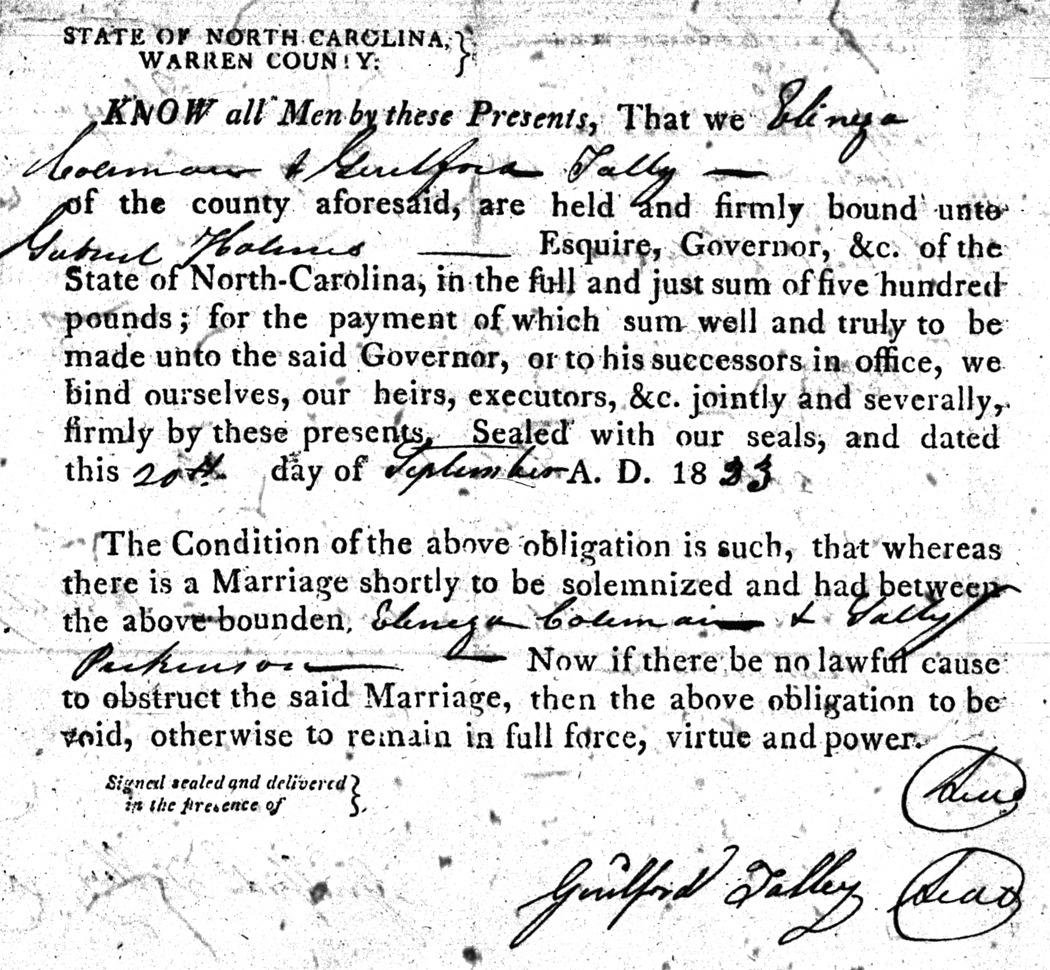 STATE OF NORTH-CAROLINA,
WARREN COUNTY:
KNOW all Men by these Presents, That we Ebeneza
Coleman & Guilford Tally
of the county aforesaid, are held and firmly bound unto
Gabriel Holmes Esquire, Governor, &c. of the
State of North-Carolina, in the full and just sum of five hundred
pounds; for the payment of which sum well and truly to be
made unto the said Governor, or to his successors in office, we
bind ourselves, our heirs, executors, &c. jointly and severally,
firmly by these presents, Sealed with our seals, and dated
this 20th day of September A. D. 1823
The Condition of the above obligation is such, that whereas
there is a Marriage shortly to be solemnized and had between
the above bounden, Ebeneza Coleman & Sally
Parkinson Now if there be no lawful cause
to obstruct the said Marriage, then the above obligation to be
void, otherwise to remain in full force, virtue and power.
Signed sealed and delivered
in the presence of
Seal
Guilford Talley Seal